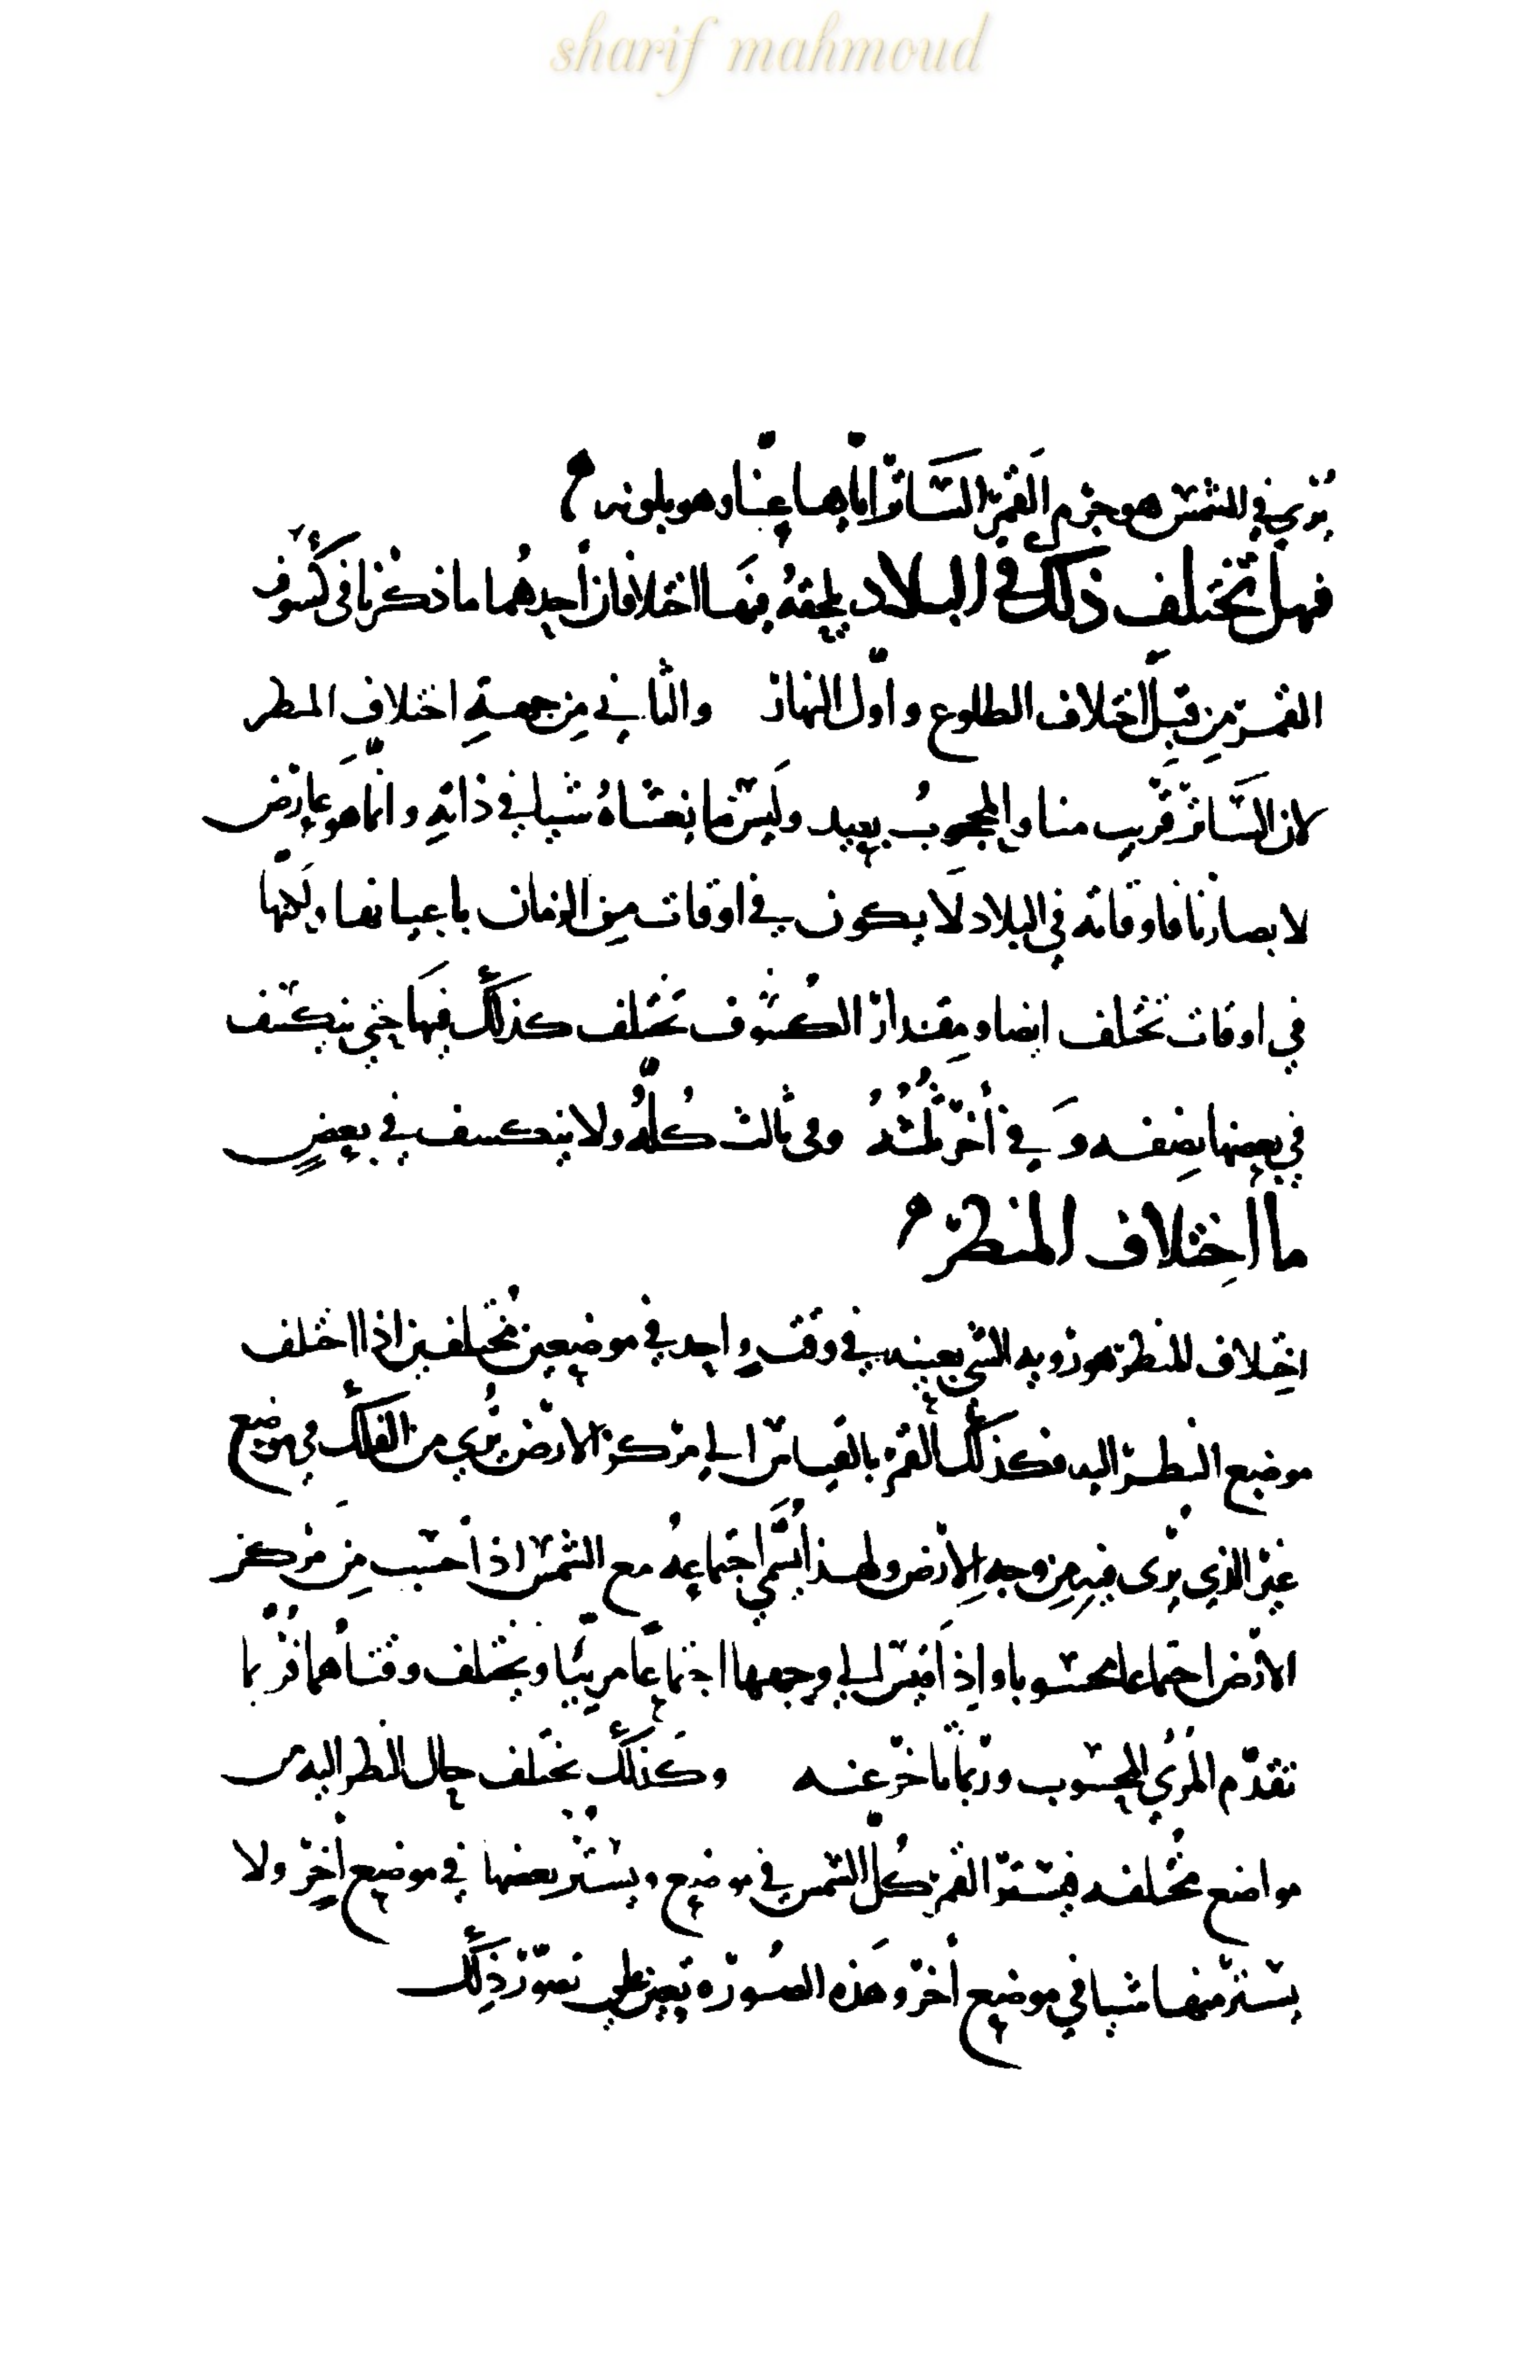 sharif mahmoud
يُرى في الشمس هو جرم القمر الساتر اياها عنا وهو بلونه م
فهل تختلف ذلك في البلاد يلحقه فيها اختلافان أحدهما ما ذكرنا في كسوف
القمر من قبل اختلاف الطلوع واوّل النهار والثاني من جهةِ اختلافِ المنطر
لان السّاتر قريب منا والمحجوبُ بعيد وليس ما يغشاهُ شيا في ذاته وانّما هو عارض
لابصارنا فاوقاته في البلاد لا يكون في اوقات من الزمان باعيانها ولكنّها
في اوقات تختلف ايضا ومقدار الكسُوف تختلف كذلك فيها حتى ينكسف
في بعضها نصفه وَفي أخر ثُلُثُهُ وفى ثالث كُلّهُ ولا ينكسف في بعضٍ
ما اختلاف المنطر م
اختلاف المنطر هو رويه الشي بعينه في وقت واحد في موضعين مُختلفين اذا اختلف
موضع النطر اليه فكذلك القمر بالقياس الي مركز الارض يُرى من الفلك في موضع
غير الذي يرى فيه من وجهِ الارض ولهذا يُسَمّي اجتماعهُ مع الشمس اذا حسب من مركز
الارض اجتماعا محسوبا واذا قيس الي وجهها اجتماعًا مرييّا ويختلف وقتاهُما فرُبّما
تقدّم المرُيُ المحسوب وربّما تاخّر عنه وكذلك يختلف حال النطر اليه من
مواضع مُختلفه فيستر القمر كُلّ الشمس في موضع ويستُر بعضها في موضع أخر ولا
يستر منها شيا في موضع أخر وهذه الصُورة تعين علي تصوّر ذلك